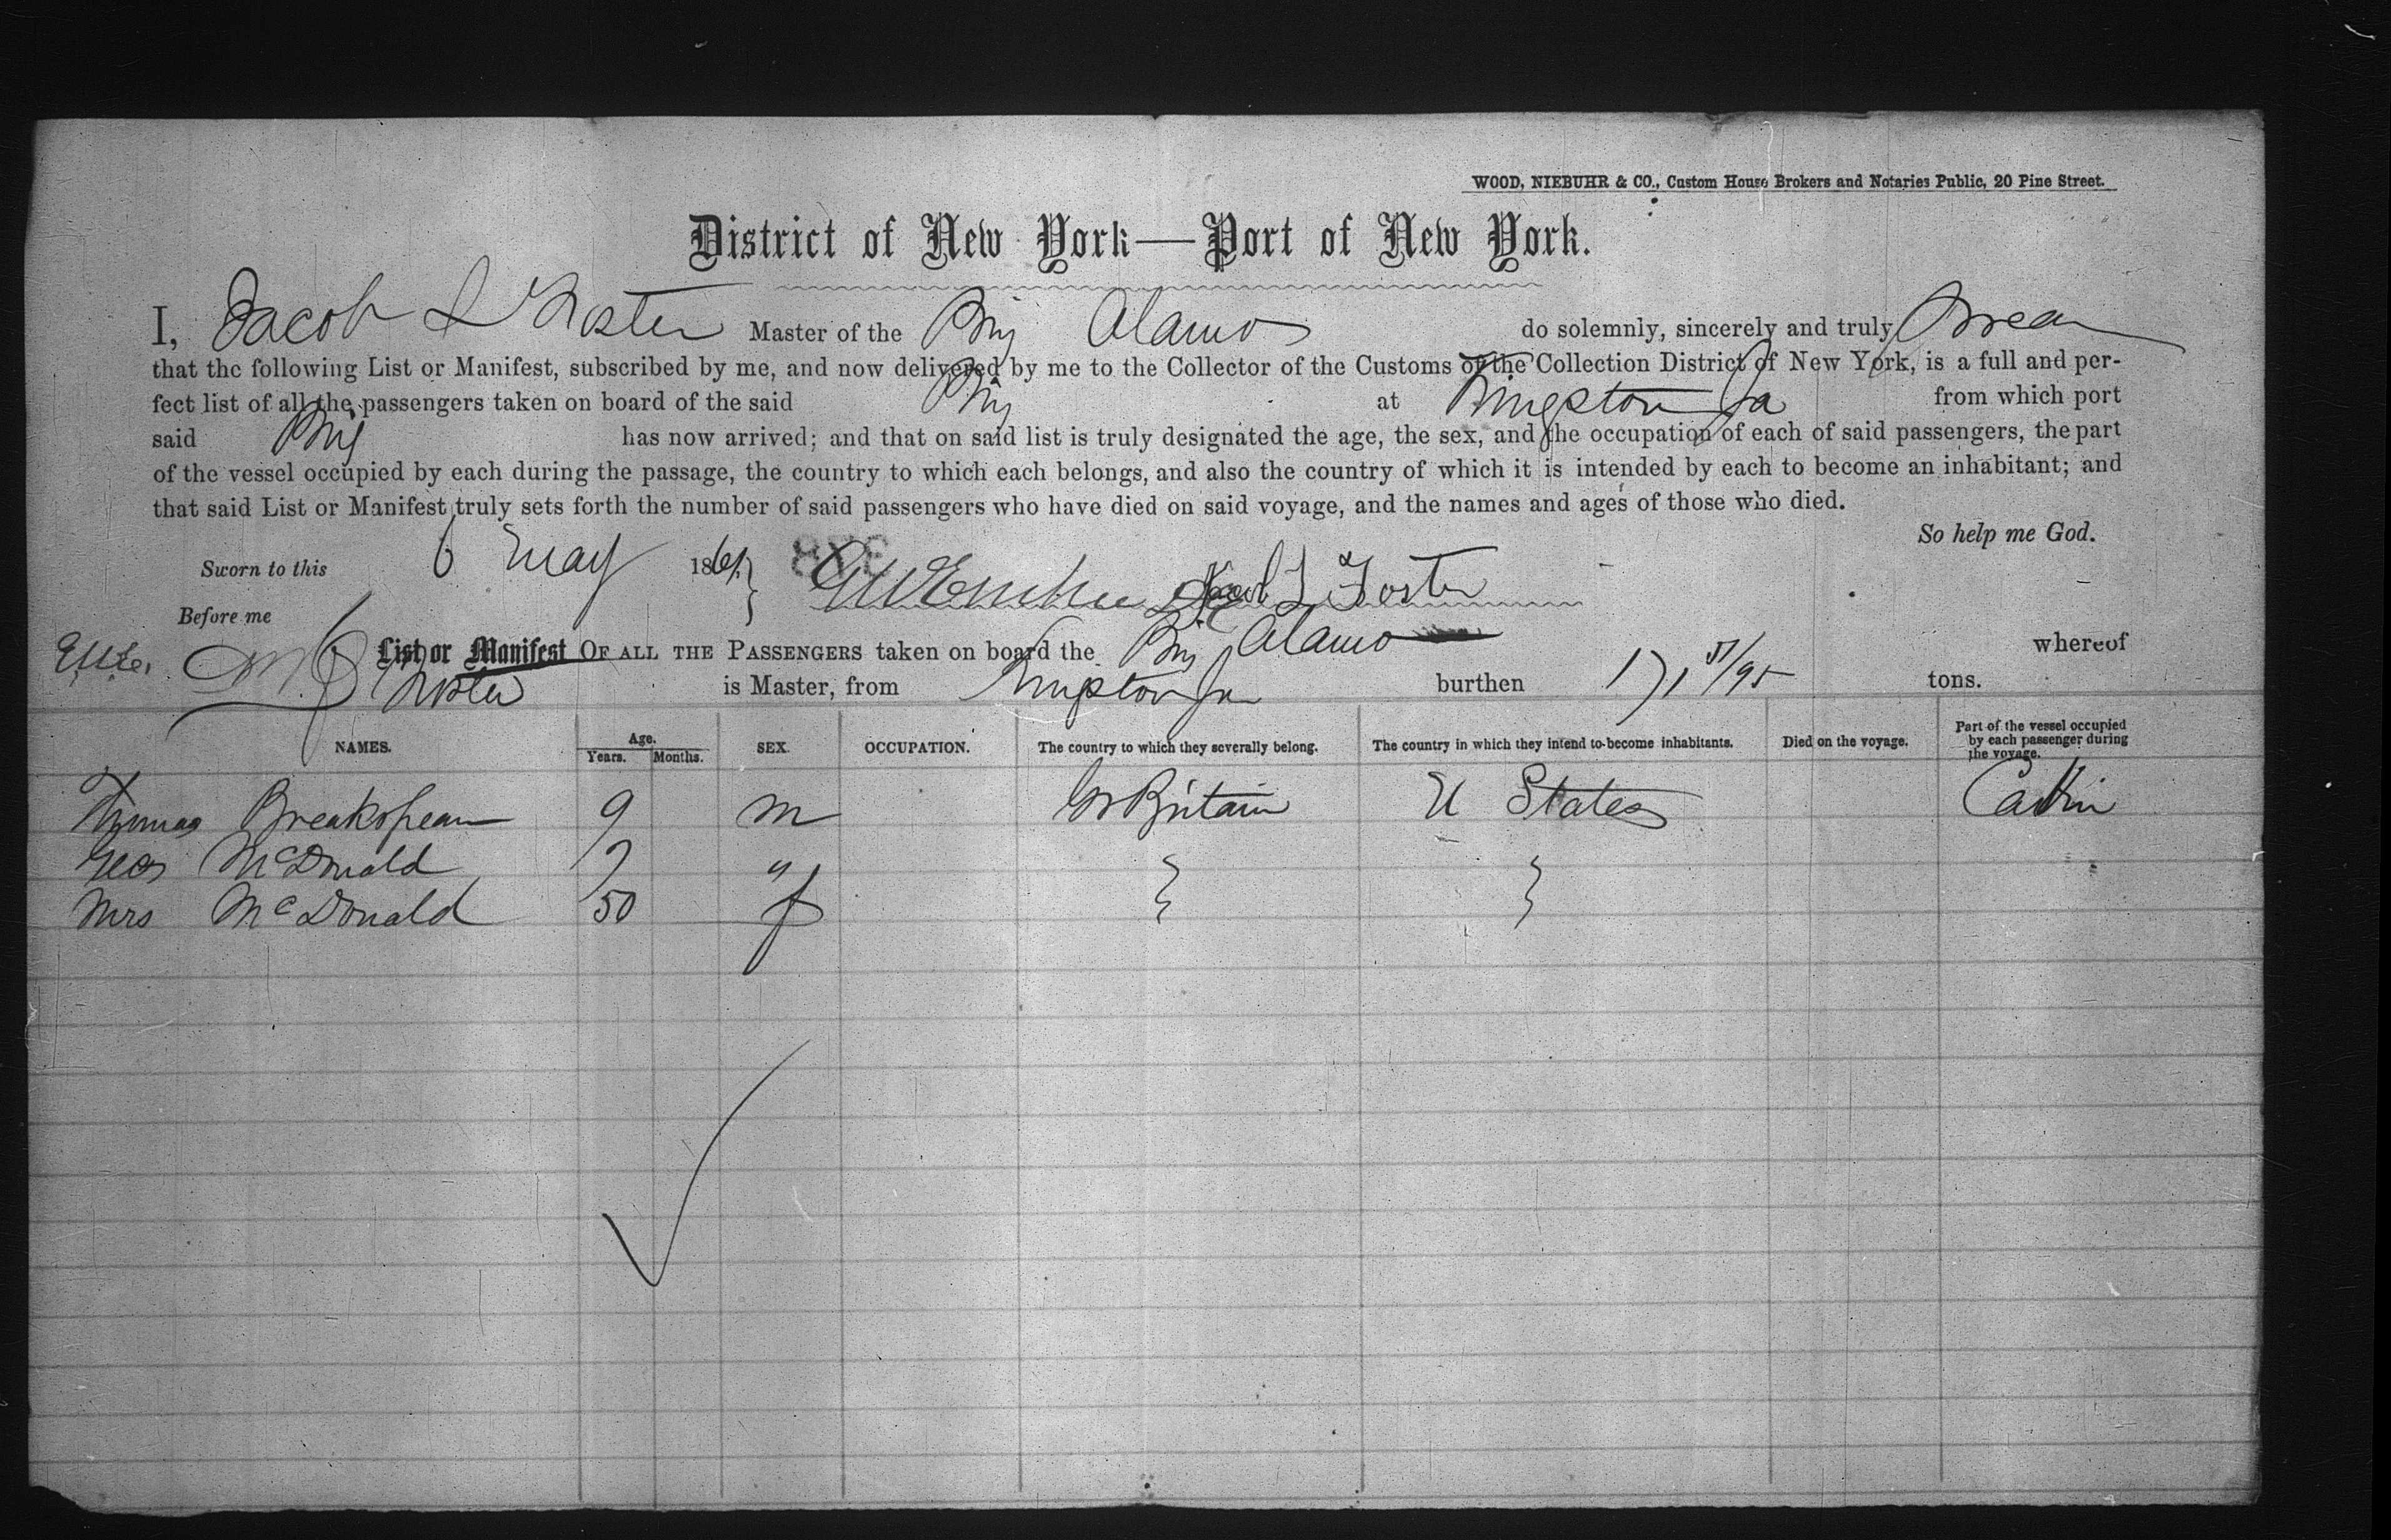 WOOD, NIEBUHR & CO., Custom House Brokers and Notaries Public, 20 Pine Street.
District of New York—Port of New York.
I, Jacob L Foster Master of the Brig Alamo do solemnly, sincerely and truly Swear
that the following List or Manifest, subscribed by me, and now delivered by me to the Collector of the Customs of the Collection District of New York, is a full and per-
fect list of all the passengers taken on board of the said Brig at Kingston Ja from which port
said Brig has now arrived; and that on said list is truly designated the age, the sex, and the occupation of each of said passengers, the part
of the vessel occupied by each during the passage, the country to which each belongs, and also the country of which it is intended by each to become an inhabitant; and
that said List or Manifest truly sets forth the number of said passengers who have died on said voyage, and the names and ages of those who died.
So help me God.
Sworn to this 6 May 1861. Jacob L Foster
Before me
List or Manifest OF ALL THE PASSENGERS taken on board the Brig Alamo whereof
Foster is Master, from Kingston Ja burthen tons.
NAMES. Age. Years. Months. SEX. OCCUPATION. The country to which they severally belong. The country in which they intend to become inhabitants. Died on the voyage. Part of the vessel occupied by each passenger during the voyage.
Thomas Breakspear 9 m Gr Britain U States Cabin
Geo McDonald 7 "
Mrs McDonald 50 f